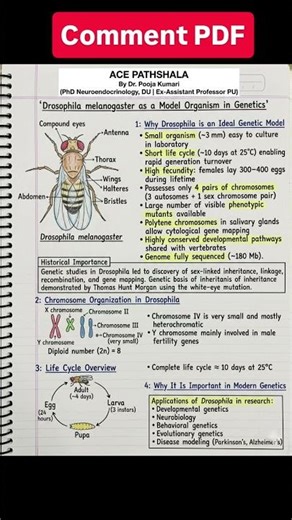 Comment PDF
ACE PATHSHALA
By Dr. Pooja Kumari
(PhD Neuroendocrinology, DU | Ex-Assistant Professor PU)
'Drosophila melanogaster as a Model Organism in Genetics'
Compound eyes
Antenna
Thorax
Wings
Halteres
Abdomen
Bristles
Drosophila melanogaster
1: Why Drosophila is an Ideal Genetic Model
• Small organism (~3 mm) easy to culture
in laboratory
• Short life cycle (~10 days at 25°C) enabling
rapid generation turnover
• High fecundity: females lay 300–400 eggs
during lifetime
• Possesses only 4 pairs of chromosomes
(3 autosomes + 1 sex chromosome pair)
• Large number of visible phenotypic
mutants available
• Polytene chromosomes in salivary glands
allow cytological gene mapping
• Highly conserved developmental pathways
shared with vertebrates
• Genome fully sequenced (~180 Mb).
Historical Importance
Genetic studies in Drosophila led to discovery of sex-linked inheritance, linkage,
recombination, and gene mapping. Genetic basis of inheritance of inheritance
demonstrated by Thomas Hunt Morgan using the white-eye mutation.
2: Chromosome Organization in Drosophila
X chromosome
Chromosome II
Chromosome III
Chromosome IV
(very small)
Y chromosome
Diploid number (2n) = 8
• Chromosome IV is very small and mostly
heterochromatic
• Y chromosome mainly involved in male
fertility genes
3: Life Cycle Overview
Adult
(~4 days)
Egg
(24
hours)
Larva
(3 instars)
Pupa
• Complete life cycle ≈ 10 days at 25°C
4: Why It Is Important in Modern Genetics
Applications of Drosophila in research:
• Developmental genetics
• Neurobiology
• Behavioral genetics
• Evolutionary genetics
• Disease modeling (Parkinson's, Alzheimer's)